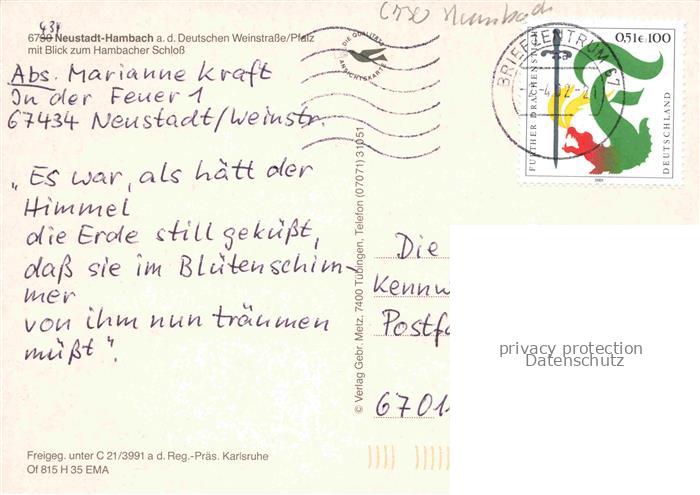 6730 Neustadt-Hambach a. d. Deutschen Weinstraße/Pfalz
mit Blick zum Hambacher Schloß
434
6730 Hambach
DIE QUALITÄTS
ANSICHTSKARTE
Abs. Marianne Kraft
In der Feuer 1
67434 Neustadt/Weinstr.
„Es war, als hätt der
Himmel
die Erde still geküßt,
daß sie im Blütenschim-
mer
von ihm nun träumen
müßt".
Freigeg. unter C 21/3991 a d. Reg.-Präs. Karlsruhe
Of 815 H 35 EMA
© Verlag Gebr. Metz, 7400 Tübingen, Telefon (07071) 31051
BRIEFZENTRUM 67
0,51€ 100
FURTHER DRACHENSTICH
DEUTSCHLAND
Die
Kennw
Postfa
6701
privacy protection
Datenschutz